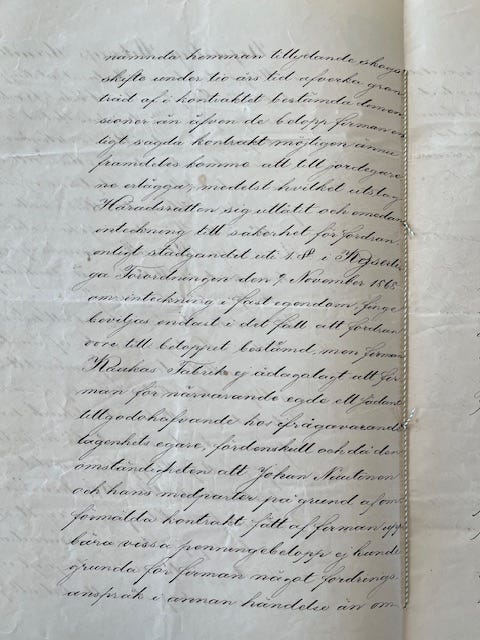 nämnda hemman tillydande skogs
skifte under tio års tid afverka gran
träd af i kontraktet bestämda dimen
sioner än äfven de belopp firman en
ligt sagda kontrakt möjligen ännu
framdeles komme att till jordegare
ne erlägga; medelst hvilket utslag
Häradsrätten sig utlåtit och omedan
inteckning till säkerhet för fordran
enligt stadgandet uti 1 § i Kejserli
ga Förordningen den 9 November 1868
om inteckning i fast egendom finge
beviljas endast i det fall att fordran
vore till beloppet bestämd, men firman
Kaukas Fabrik ej ådagalagt att fir
man för närvarande egde ett sådant
tillgodohafvande hos ifrågavarande
lägenhets egare, fördenskull och då den
omständigheten att Johan Nautonen
och hans medparter på grund af om
förmälda kontrakt fått af firman upp
bära vissa penningebelopp ej kunde
grunda för firman något fordrings
anspråk i annan händelse än om